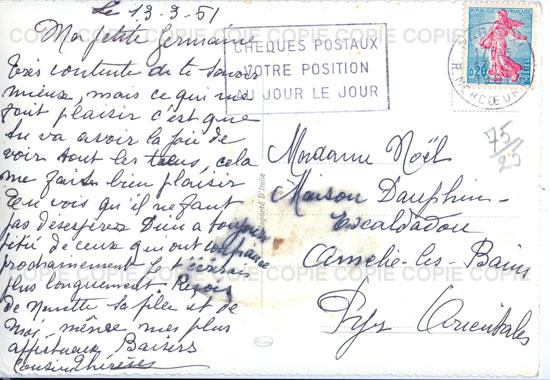 Le 13-9-61
Ma petite Germaine
Très contente de te savoir
mieux, mais ce qui me
fait plaisir c'est que
tu va avoir la joie de
voir tout les tiens, cela
me fait bien plaisir
Tu vois qu'il ne faut
pas désespérer Dieu a toujours
pitié de ceux qui ont confiance
prochainement je t'écrirais
plus longuement Reçois
de Ninette sa fille et de
moi, même mes plus
affectueux Baisers
Cousine Thérèse
CHEQUES POSTAUX
VOTRE POSITION
AU JOUR LE JOUR
REPUBLIQUE FRANÇAISE
0,20
POSTES
R. MERCŒUR
75/25
Madame Noël
Maison Dauphin-
Escaldadou
Amélie-les-Bains
Pyr Orientales
COPIE COPIE COPIE COPIE